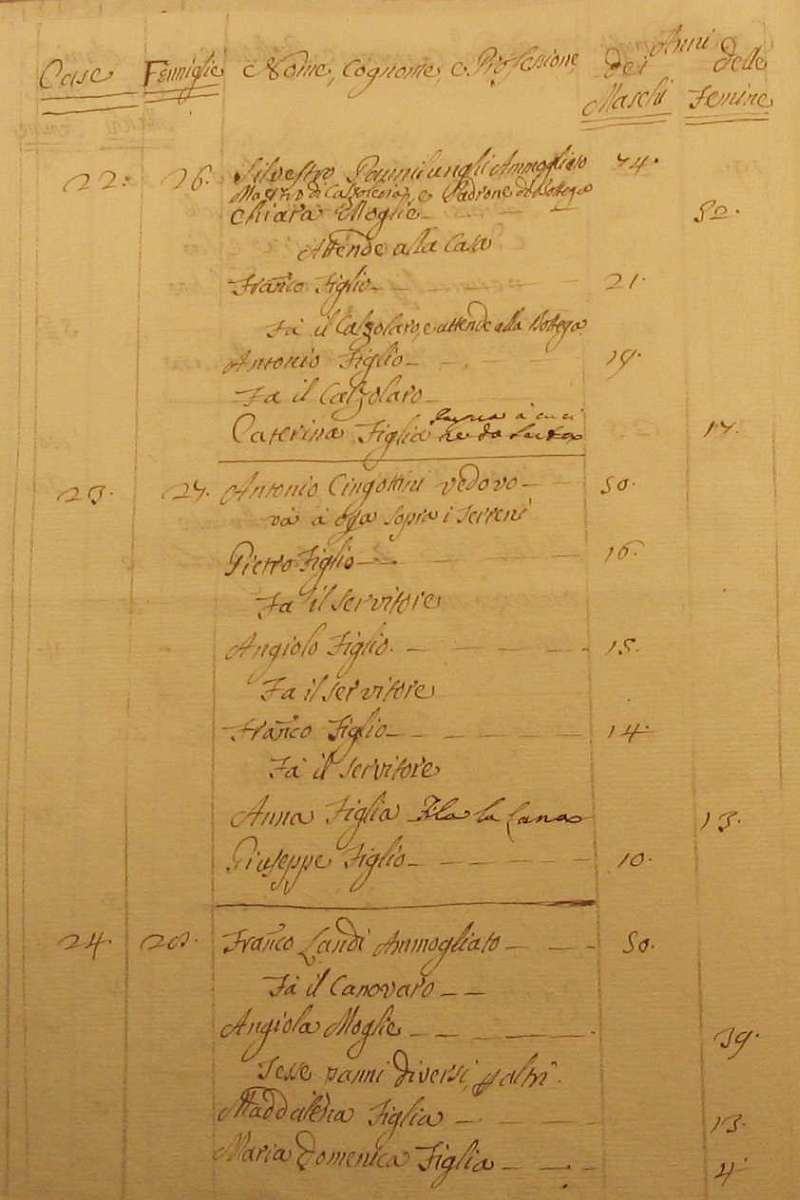 Case Famiglie Nome, Cognome, e Professione Anni
dei Maschi delle Femine
22. 26. Silvestro Ammogliato 74.
Mastro di Calzoleria, e Padrone di Botega
Chiara Moglie 50.
Attende alla Casa
Fran.co Figlio 21.
Fà il Calzolaro, e attende alla Botega
Antonio Figlio 19.
Fa il Calzolaro
Caterina Figlia 17.
23. 27. Antonio Cingottini vedovo 50.
và à opa sopra i terreni
Pietro Figlio 16.
Fa il Servitore
Angiolo Figlio. 15.
Fa il servitore
Fran.co Figlio 14.
Fà il Servitore
Anna Figlia Fila la Lana 13.
Giuseppe Figlio 10.
24. 28. Fran.co Landi Ammogliato 50.
Fà il Canovaro
Angiola Moglie 39.
Tesse panni diversi p altri.
Maddalena Figlia 13.
Maria Domenica Figlia 4.